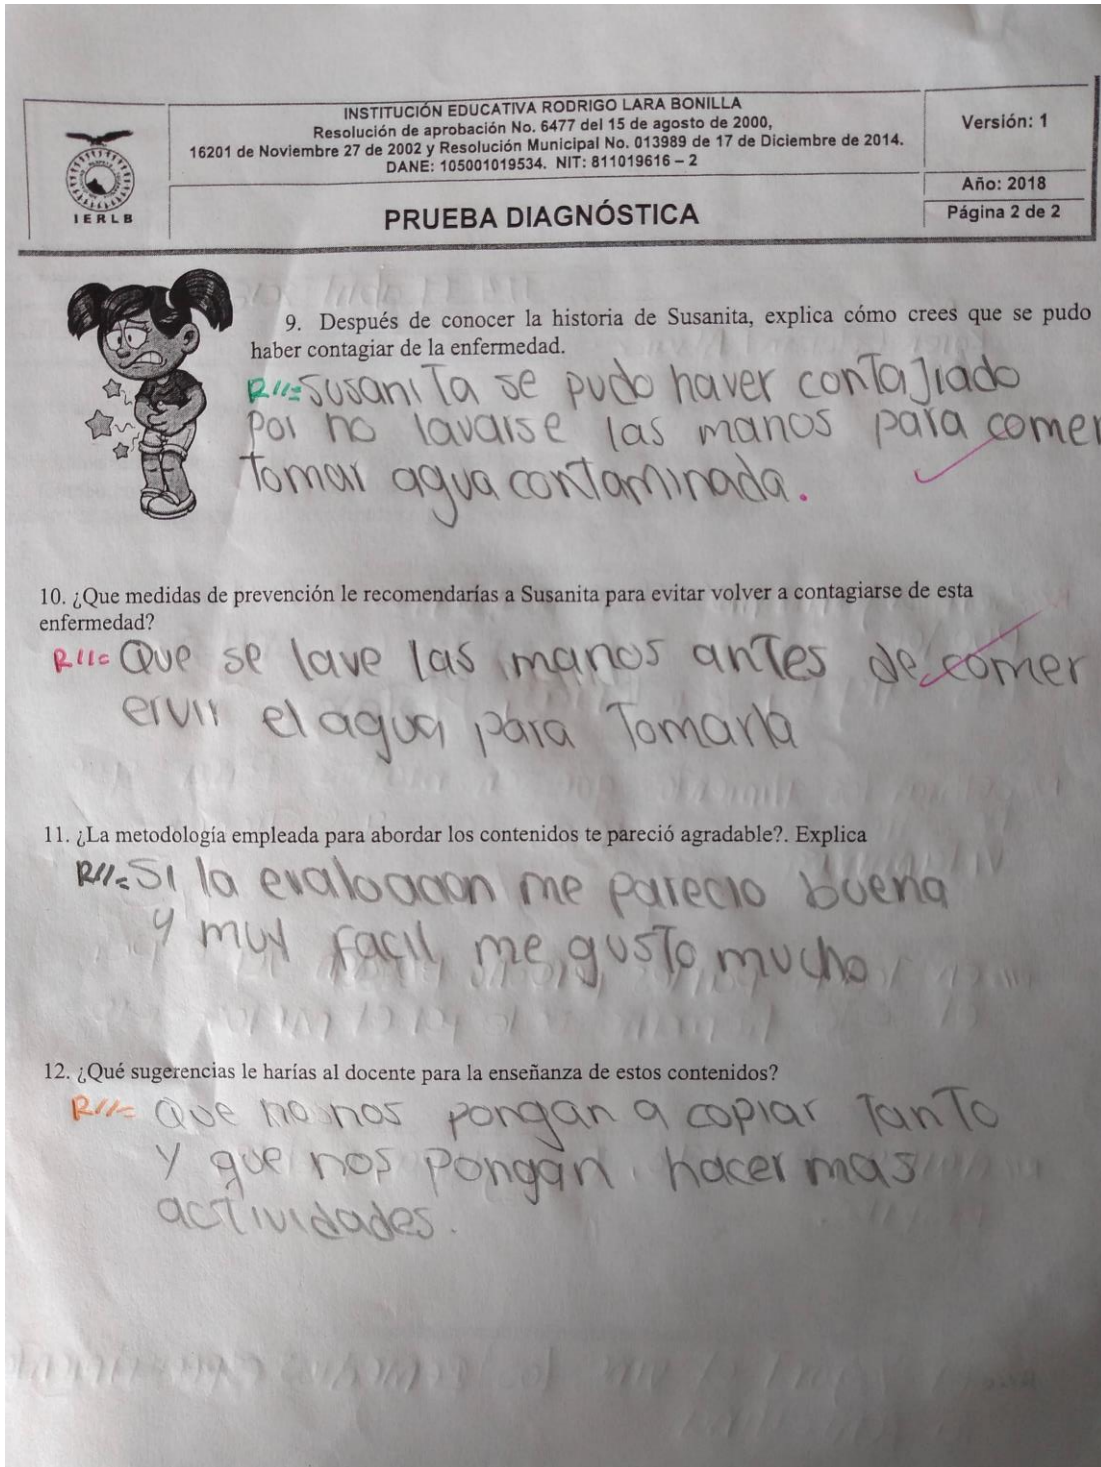 INSTITUCIÓN EDUCATIVA RODRIGO LARA BONILLA
Resolución de aprobación No. 6477 del 15 de agosto de 2000,
16201 de Noviembre 27 de 2002 y Resolución Municipal No. 013989 de 17 de Diciembre de 2014.
DANE: 105001019534. NIT: 811019616 – 2
Versión: 1
IERLB
PRUEBA DIAGNÓSTICA
Año: 2018
Página 2 de 2
9. Después de conocer la historia de Susanita, explica cómo crees que se pudo
haber contagiar de la enfermedad.
R//= Susanita se pudo haver contajiado
Por no lavarse las manos para comer
Tomar agua contaminada.
10. ¿Que medidas de prevención le recomendarías a Susanita para evitar volver a contagiarse de esta
enfermedad?
R//= Que se lave las manos antes de comer
ervir el agua para Tomarla
11. ¿La metodología empleada para abordar los contenidos te pareció agradable?. Explica
R//= Si la evaloacion me parecio buena
y muy facil me gusto mucho
12. ¿Qué sugerencias le harías al docente para la enseñanza de estos contenidos?
R//= Que no nos pongan a copiar Tanto
y que nos Pongan hacer mas
actividades.